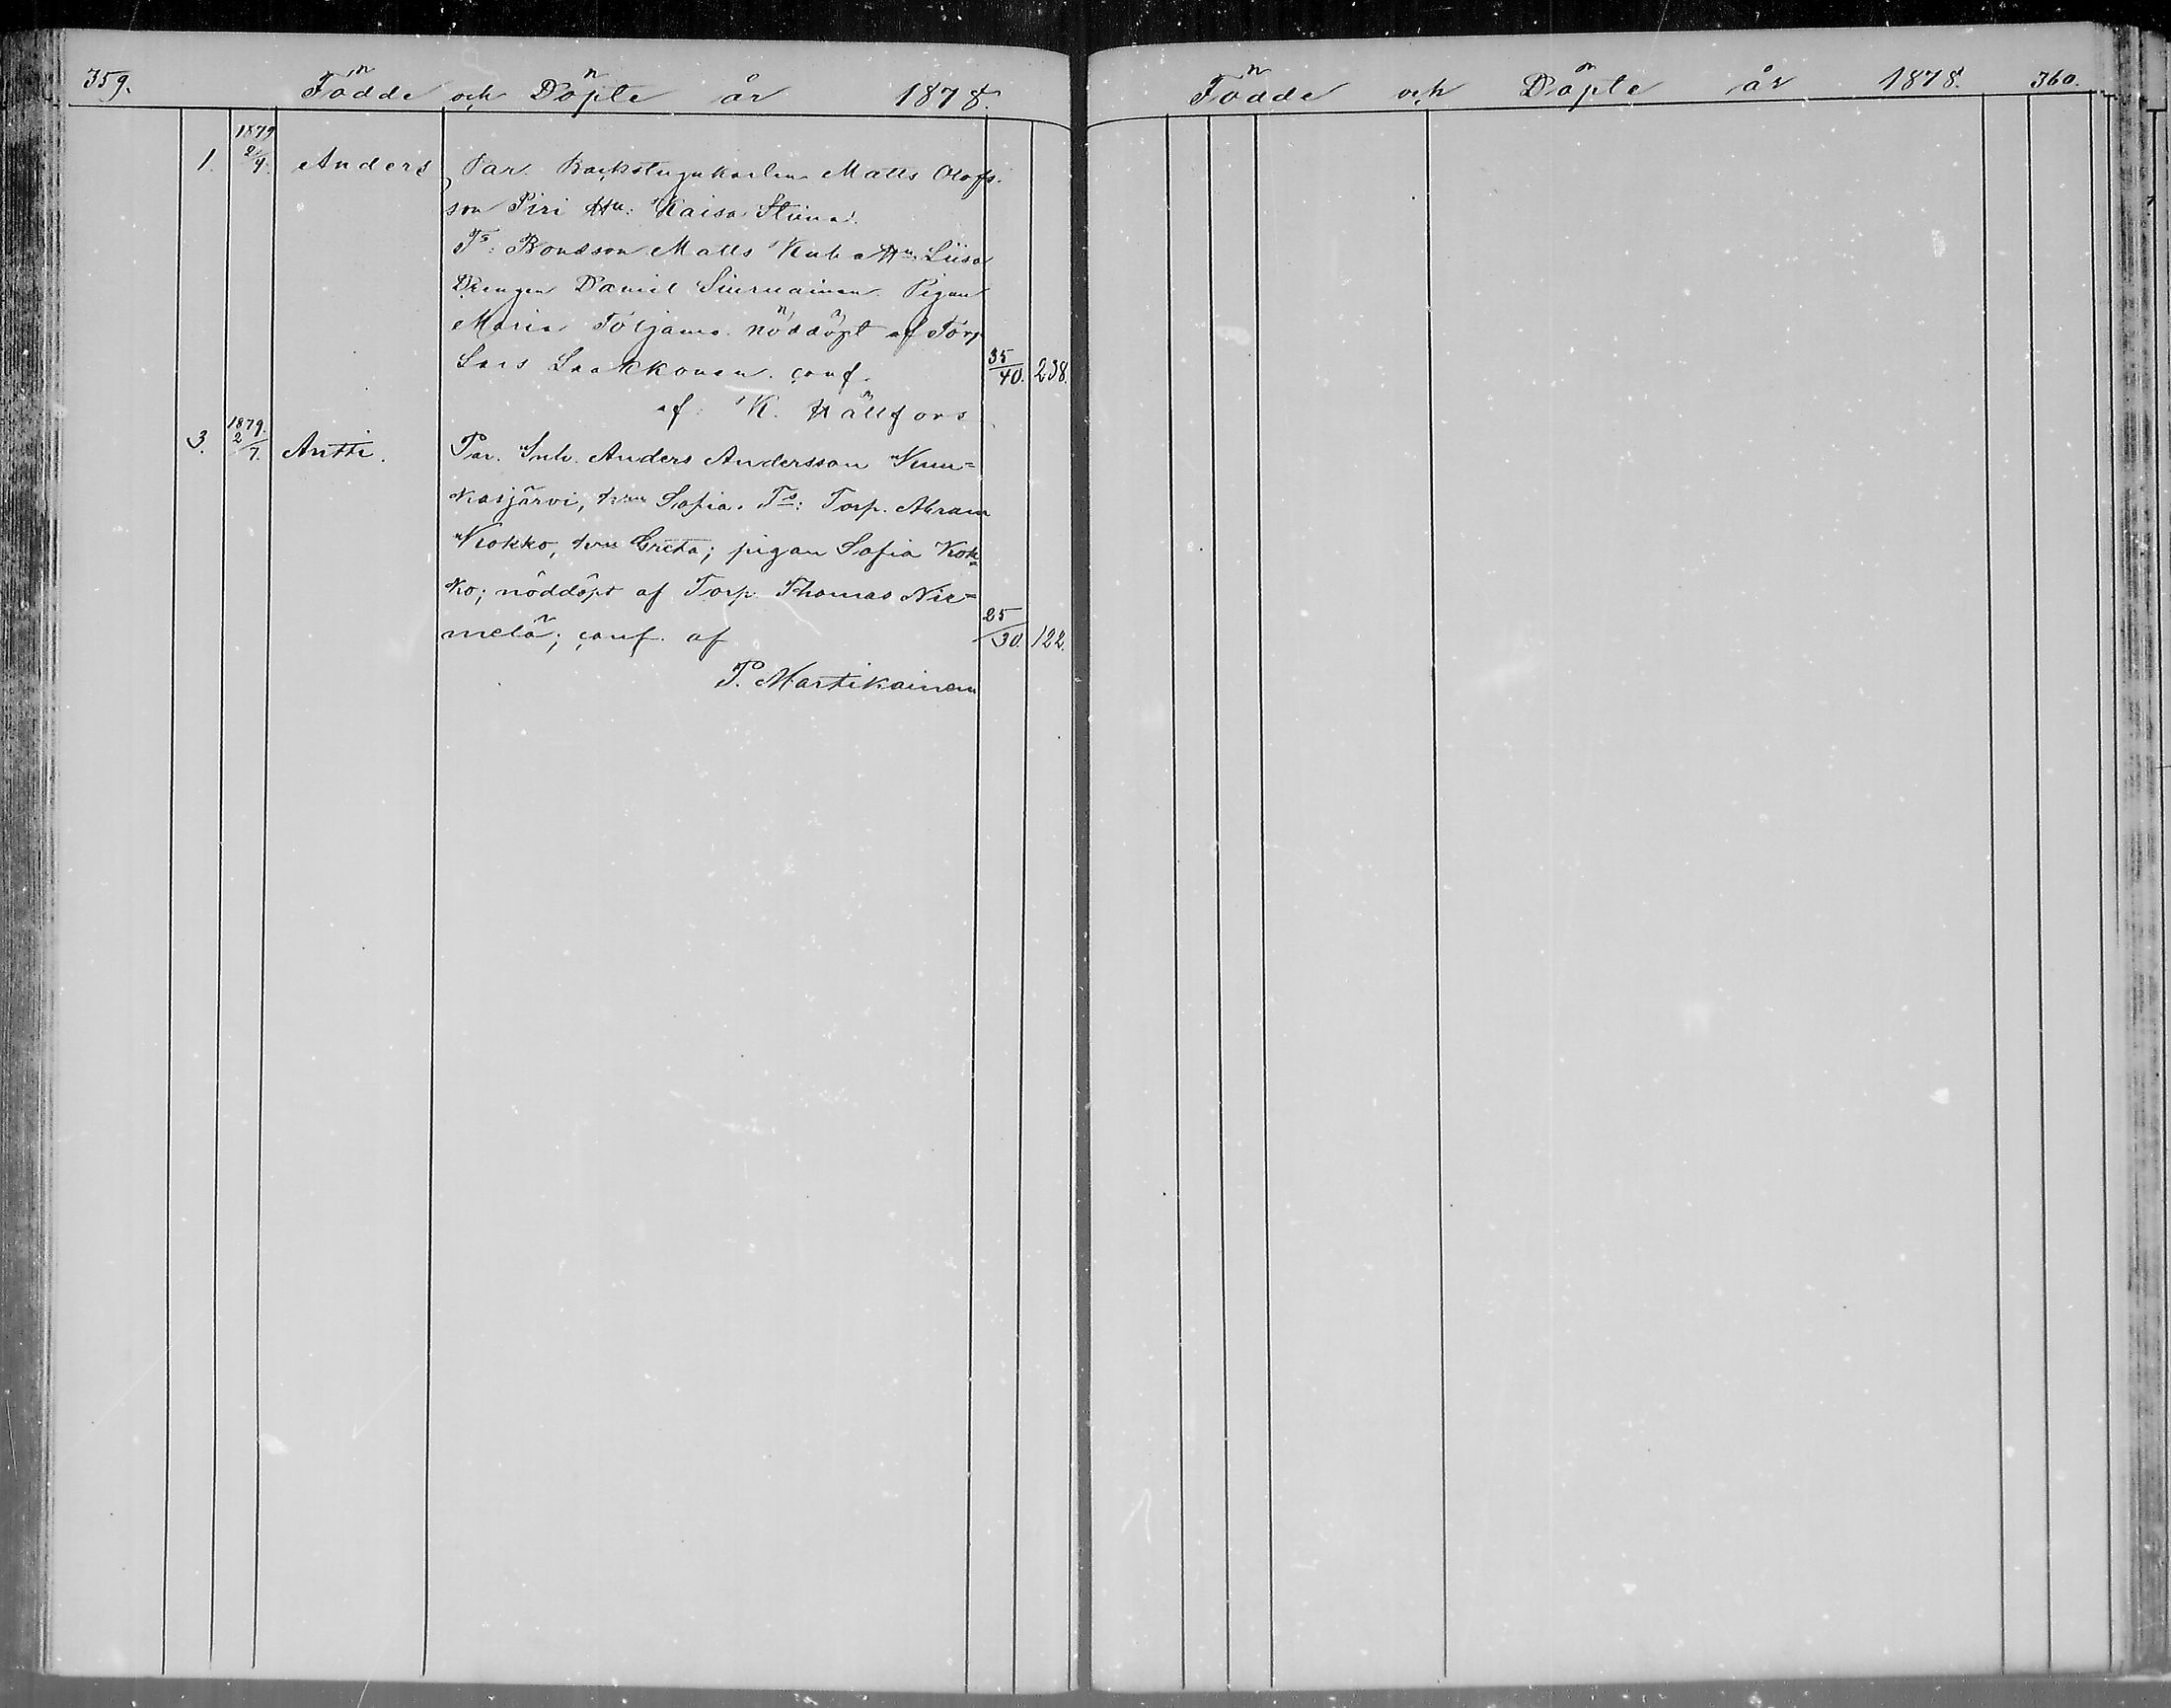 359. Födde och Döpte år 1878.
1879
1. 2/4. Anders Par. Backstugukarlen Matts Olofs-
son Piri Hu: Kaisa Stiina.
Ts: Bondson Matts Hu Liisa
Drengen Daniel Pigan
Maria Töljamo. nöddöpt af Torp
Lars Laakkonen. conf. 35/40. 238.
af: K. Hällfors
1879.
3. 2/7. Antti. Par. Inh. Anders Andersson Kuu-
kasjärvi, hru Sofia. Ts: Torp. Abram
Kokko, hru Greta; pigan Sofia Kok-
ko; nöddöpt af Torp. Thomas Nie-
melä; conf. af 25/30. 122.
P. Martikainen
Födde och Döpte år 1878. 360.